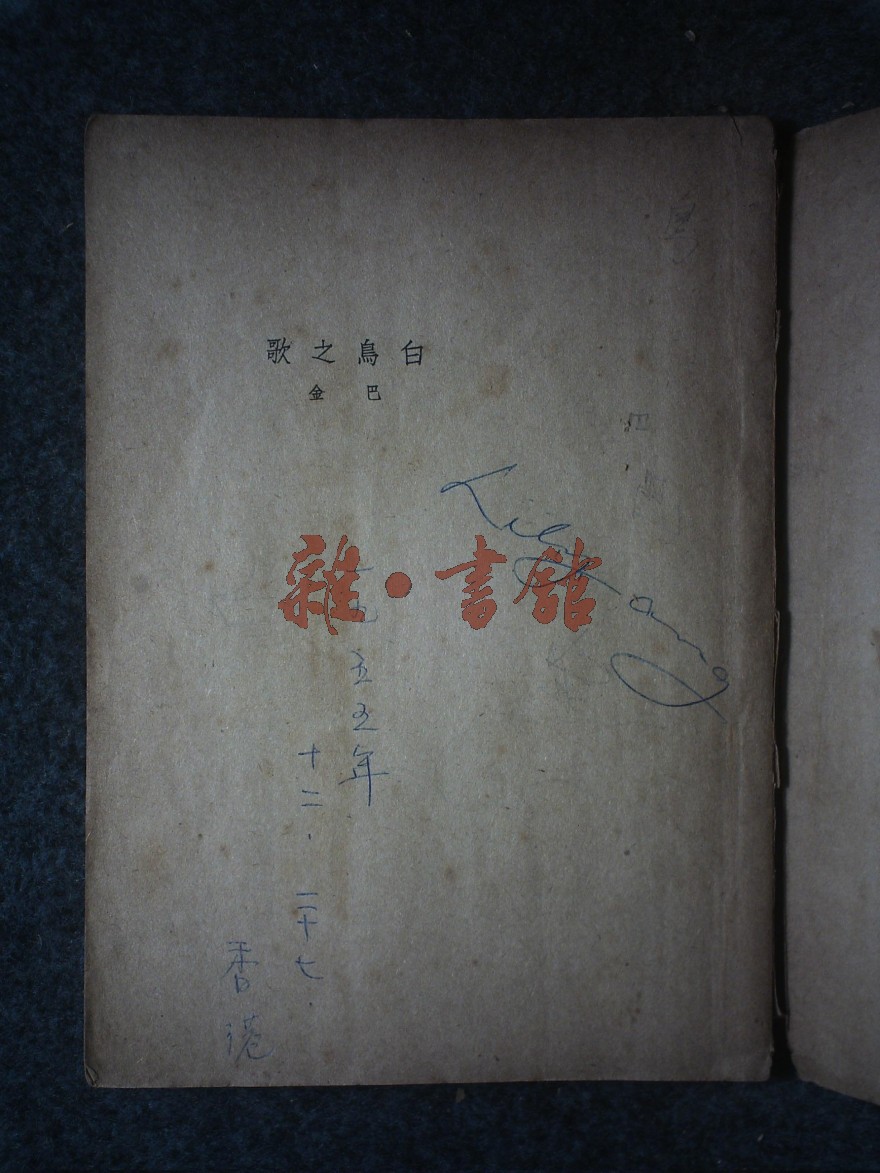 白鳥之歌
巴金
雜·書館
一九五五年
十二．二十七．
香港